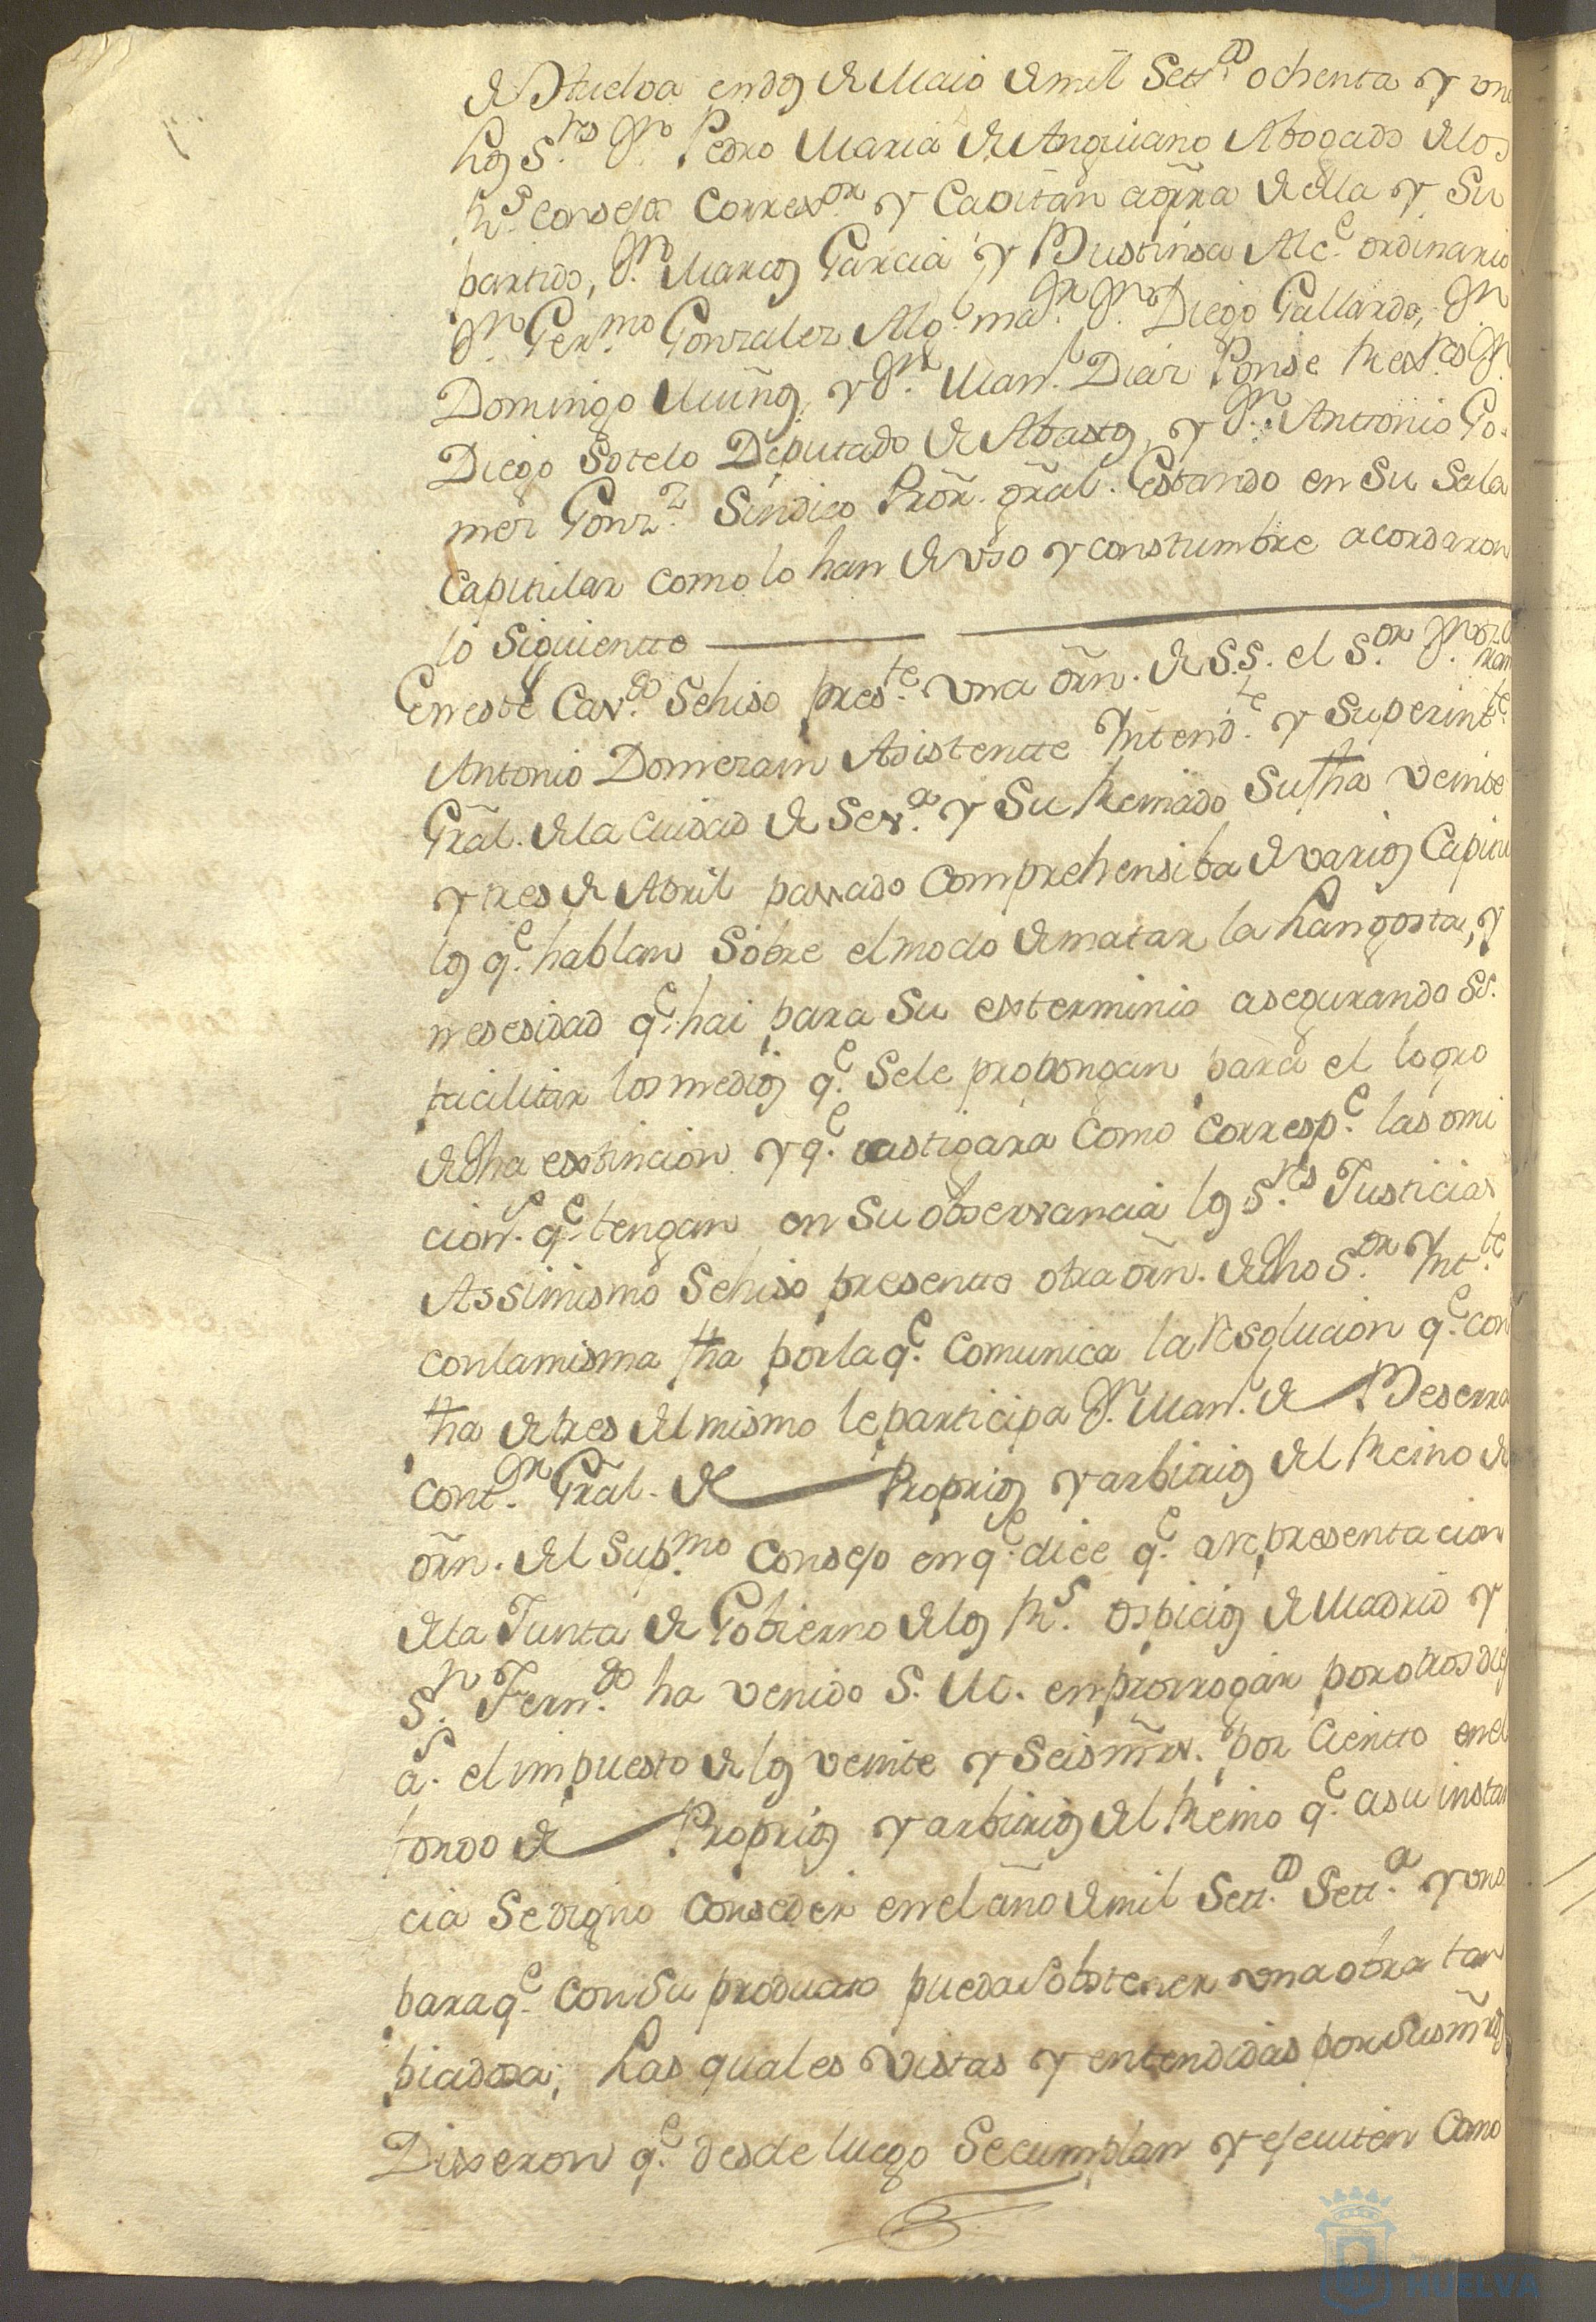 de Huelva en dos de Maio de mil Sett.os ochenta y uno
los S.res D.n Pedro Maria de Anguiano Abogado de los
R.s Consejos Correx.or y Capitan aguerra de ella y Su
partido, D.n Marcos Garcia y Bustinsa Alc.e ordinario
D.n Ger.mo Gonzalez Alg.l ma.or D.n Diego Gallardo, D.n
Domingo Muñoz, y D.n Man.l Diaz Ponse Rex.res D.n
Diego Sotelo Deputado de Abastos, y D.n Antonio Go-
mez Gonz.z Sindico Prõr. grãl. Estando en Su Sala
Capitular como lo han de uso y constumbre acordaron
lo Siguiente
En este Cav.do Se hiso pres.te una õrn. de S.S. el S.or D.n
Antonio Domezain Asistente Yntend.te y Superint.te
Grãl. de la Ciudad de Sev.a y Su Reinado Su fha veinte
y tres de Abril passado Comprehensiba de varios Capitu
los q.e hablan Sobre el modo de matar la Langosta, y
nesesidad q.e hai para Su exterminio asegurando SS.
facilitar los medios q.e Se le propongan para el logro
de dha extincion y q.e castigara Como corresp.e las omi
cion.s q.e tengan en Su observancia los S.res Justicias
Assimismo Se hiso presente otra õrn. de dho S.or Ynt.te
con la misma fha por la q.e Comunica la resolucion q.e con
fha de tres del mismo le participa D.n Man.l de Beserra
Cont.or Grãl. de Proprios y arbitrios del Reino de
õrn. del Sup.mo Consejo en q.e dice q.e a representacion
de la Junta de Gobierno de los R.s Ospicios de Madrid y
S.n Fern.do ha venido S. M. en prorrogar por otros dies
a.s el impuesto de los veinte y Seis mrs. por Ciento en el
fondo de Proprios y arbitrios del Reino q.e a su instan
cia Se digno Conseder en el año de mil Sett.os Sett.a y uno
para q.e con Su producto pueda Sobstener una obra tan
piadosa; Las quales vistas y entendidas por Sus mrds
Dixeron q.e desde luego Se cumplan y ejecuten Como
HUELVA